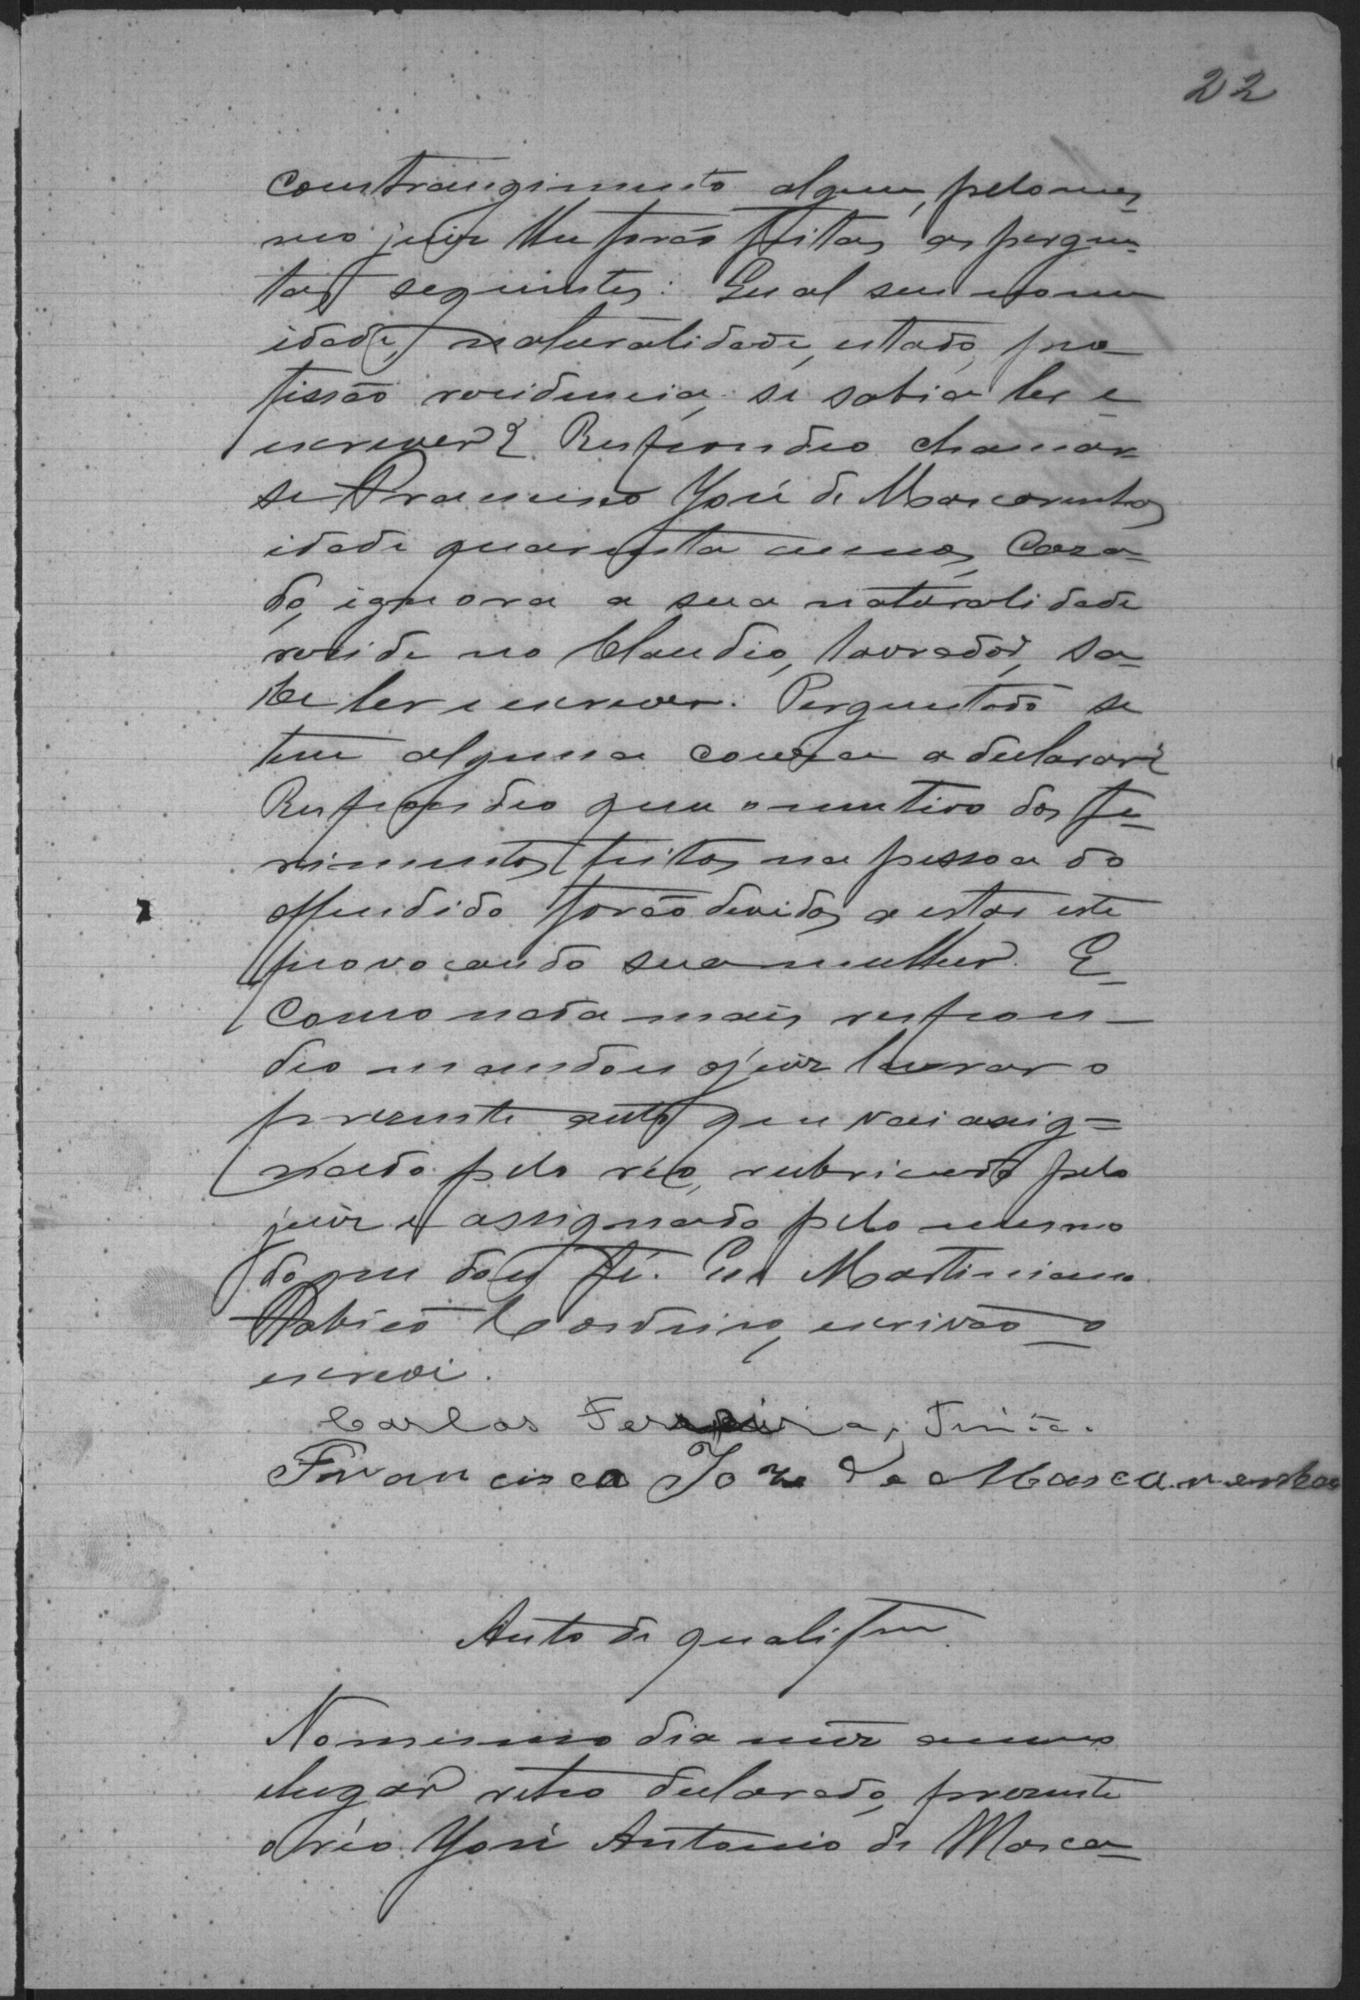 22
constrangimento algum, pelo mes
mo juiz lhe forão feitas as pergun-
tas seguintes: Qual seu nome
idade, naturalidade, estado, pro-
fissão rezidencia, si sabia ler e
escrever? Respondeo chamar
se Francisco José de Mascarenhas
idade quarenta annos, Caza-
do, ignora a sua naturalidade
rezide no Claudio, lavrador, sa-
be ler e escrever. Perguntado se
tem alguma couza a declarar?
Respondeo que o mutivo dos fe-
rimentos feitos na pessoa do
offendido forão devidos a estar este
provocando sua mulher. E
Como nada mais respon-
deo mandou o juiz lavrar o
prezente auto que vai assig=
nado pelo réo, rubricado pelo
juiz e assignado pelo mesmo
do que dou fé. Eu Martiniano
Cordeiro, escrivão o
escrevi.
Carlos Ferreira
Francisco Joze de Mascarenhas
Auto de qualifm
No mesmo dia mez anno
e lugar retro declarado, prezente
o réo José Antonio de Masca-